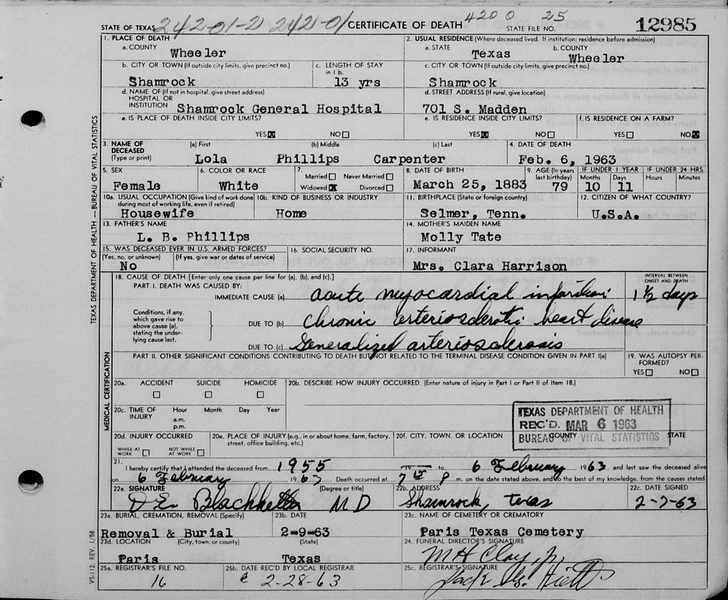 STATE OF TEXAS 242-01-2 242-01 CERTIFICATE OF DEATH 4200 25 STATE FILE NO. 12985
1. PLACE OF DEATH
a. COUNTY Wheeler
2. USUAL RESIDENCE (Where deceased lived. If institution: residence before admission)
a. STATE Texas b. COUNTY Wheeler
b. CITY OR TOWN (If outside city limits, give precinct no.) Shamrock
c. LENGTH OF STAY in 1 b. 13 yrs
c. CITY OR TOWN (If outside city limits, give precinct no.) Shamrock
d. NAME OF (If not in hospital, give street address) HOSPITAL OR INSTITUTION Shamrock General Hospital
d. STREET ADDRESS (If rural, give location) 701 S. Madden
e. IS PLACE OF DEATH INSIDE CITY LIMITS? YES NO
e. IS RESIDENCE INSIDE CITY LIMITS? YES NO
f. IS RESIDENCE ON A FARM? YES NO
3. NAME OF DECEASED (Type or print) (a) First Lola (b) Middle Phillips (c) Last Carpenter
4. DATE OF DEATH Feb. 6, 1963
5. SEX Female
6. COLOR OR RACE White
7. Married Never Married Widowed Divorced
8. DATE OF BIRTH March 25, 1883
9. AGE (In years last birthday) 79 IF UNDER 1 YEAR Months 10 Days 11 IF UNDER 24 HRS. Hours Minutes
10a. USUAL OCCUPATION (Give kind of work done during most of working life, even if retired) Housewife
10b. KIND OF BUSINESS OR INDUSTRY Home
11. BIRTHPLACE (State or foreign country) Selmer, Tenn.
12. CITIZEN OF WHAT COUNTRY? U.S.A.
13. FATHER'S NAME L. B. Phillips
14. MOTHER'S MAIDEN NAME Molly Tate
15. WAS DECEASED EVER IN U.S. ARMED FORCES? (Yes, no, or unknown) (If yes, give war or dates of service) No
16. SOCIAL SECURITY NO.
17. INFORMANT Mrs. Clara Harrison
18. CAUSE OF DEATH [Enter only one cause per line for (a), (b), and (c).]
PART I. DEATH WAS CAUSED BY: INTERVAL BETWEEN ONSET AND DEATH
IMMEDIATE CAUSE (a) acute myocardial infarction 1 1/2 days
Conditions, if any, which gave rise to above cause (a), stating the underlying cause last.
DUE TO (b) chronic arteriosclerotic heart disease
DUE TO (c) Generalized arteriosclerosis
PART II. OTHER SIGNIFICANT CONDITIONS CONTRIBUTING TO DEATH BUT NOT RELATED TO THE TERMINAL DISEASE CONDITION GIVEN IN PART I(a)
19. WAS AUTOPSY PERFORMED? YES NO
20a. ACCIDENT SUICIDE HOMICIDE
20b. DESCRIBE HOW INJURY OCCURRED. (Enter nature of injury in Part I or Part II of Item 18.)
20c. TIME OF INJURY Hour Month Day Year a.m. p.m.
20d. INJURY OCCURRED WHILE AT WORK NOT WHILE AT WORK
20e. PLACE OF INJURY (e.g., in or about home, farm, factory, street, office building, etc.)
20f. CITY, TOWN, OR LOCATION COUNTY STATE
TEXAS DEPARTMENT OF HEALTH
REC'D. MAR 6 1963
BUREAU OF VITAL STATISTICS
21. I hereby certify that I attended the deceased from 1955 to 6 February 1963 and last saw the deceased alive
on 6 February 1963 Death occurred at m. on the date stated above, and to the best of my knowledge, from the causes stated.
22a. SIGNATURE (Degree or title) MD
22b. ADDRESS Shamrock Texas
22c. DATE SIGNED 2-7-63
23a. BURIAL, CREMATION, REMOVAL (Specify) Removal & Burial
23b. DATE 2-9-63
23c. NAME OF CEMETERY OR CREMATORY Paris Texas Cemetery
23d. LOCATION (City, town, or county) (State) Paris Texas
24. FUNERAL DIRECTOR'S SIGNATURE
25a. REGISTRAR'S FILE NO. 16
25b. DATE REC'D BY LOCAL REGISTRAR 2-28-63
25c. REGISTRAR'S SIGNATURE
TEXAS DEPARTMENT OF HEALTH—BUREAU OF VITAL STATISTICS
MEDICAL CERTIFICATION
VS-112 REV. 1/58